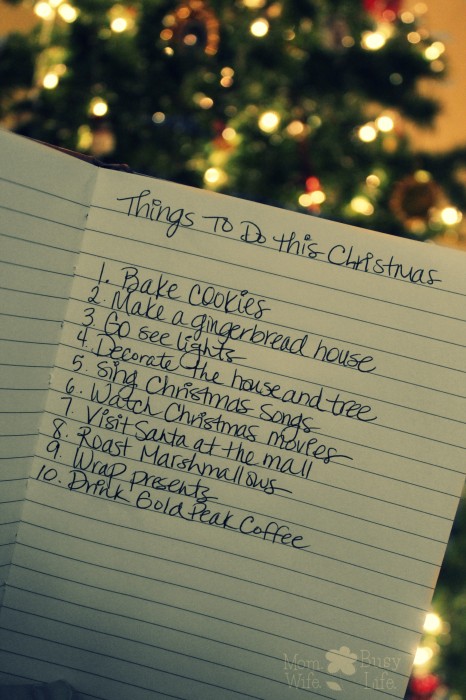 Things To Do this Christmas
1. Bake cookies
2. Make a gingerbread house
3. Go see lights
4. Decorate the house and tree
5. Sing Christmas songs
6. Watch Christmas movies
7. Visit Santa at the mall
8. Roast Marshmallows
9. Wrap presents
10. Drink Gold Peak Coffee
Mom Busy
Wife Life